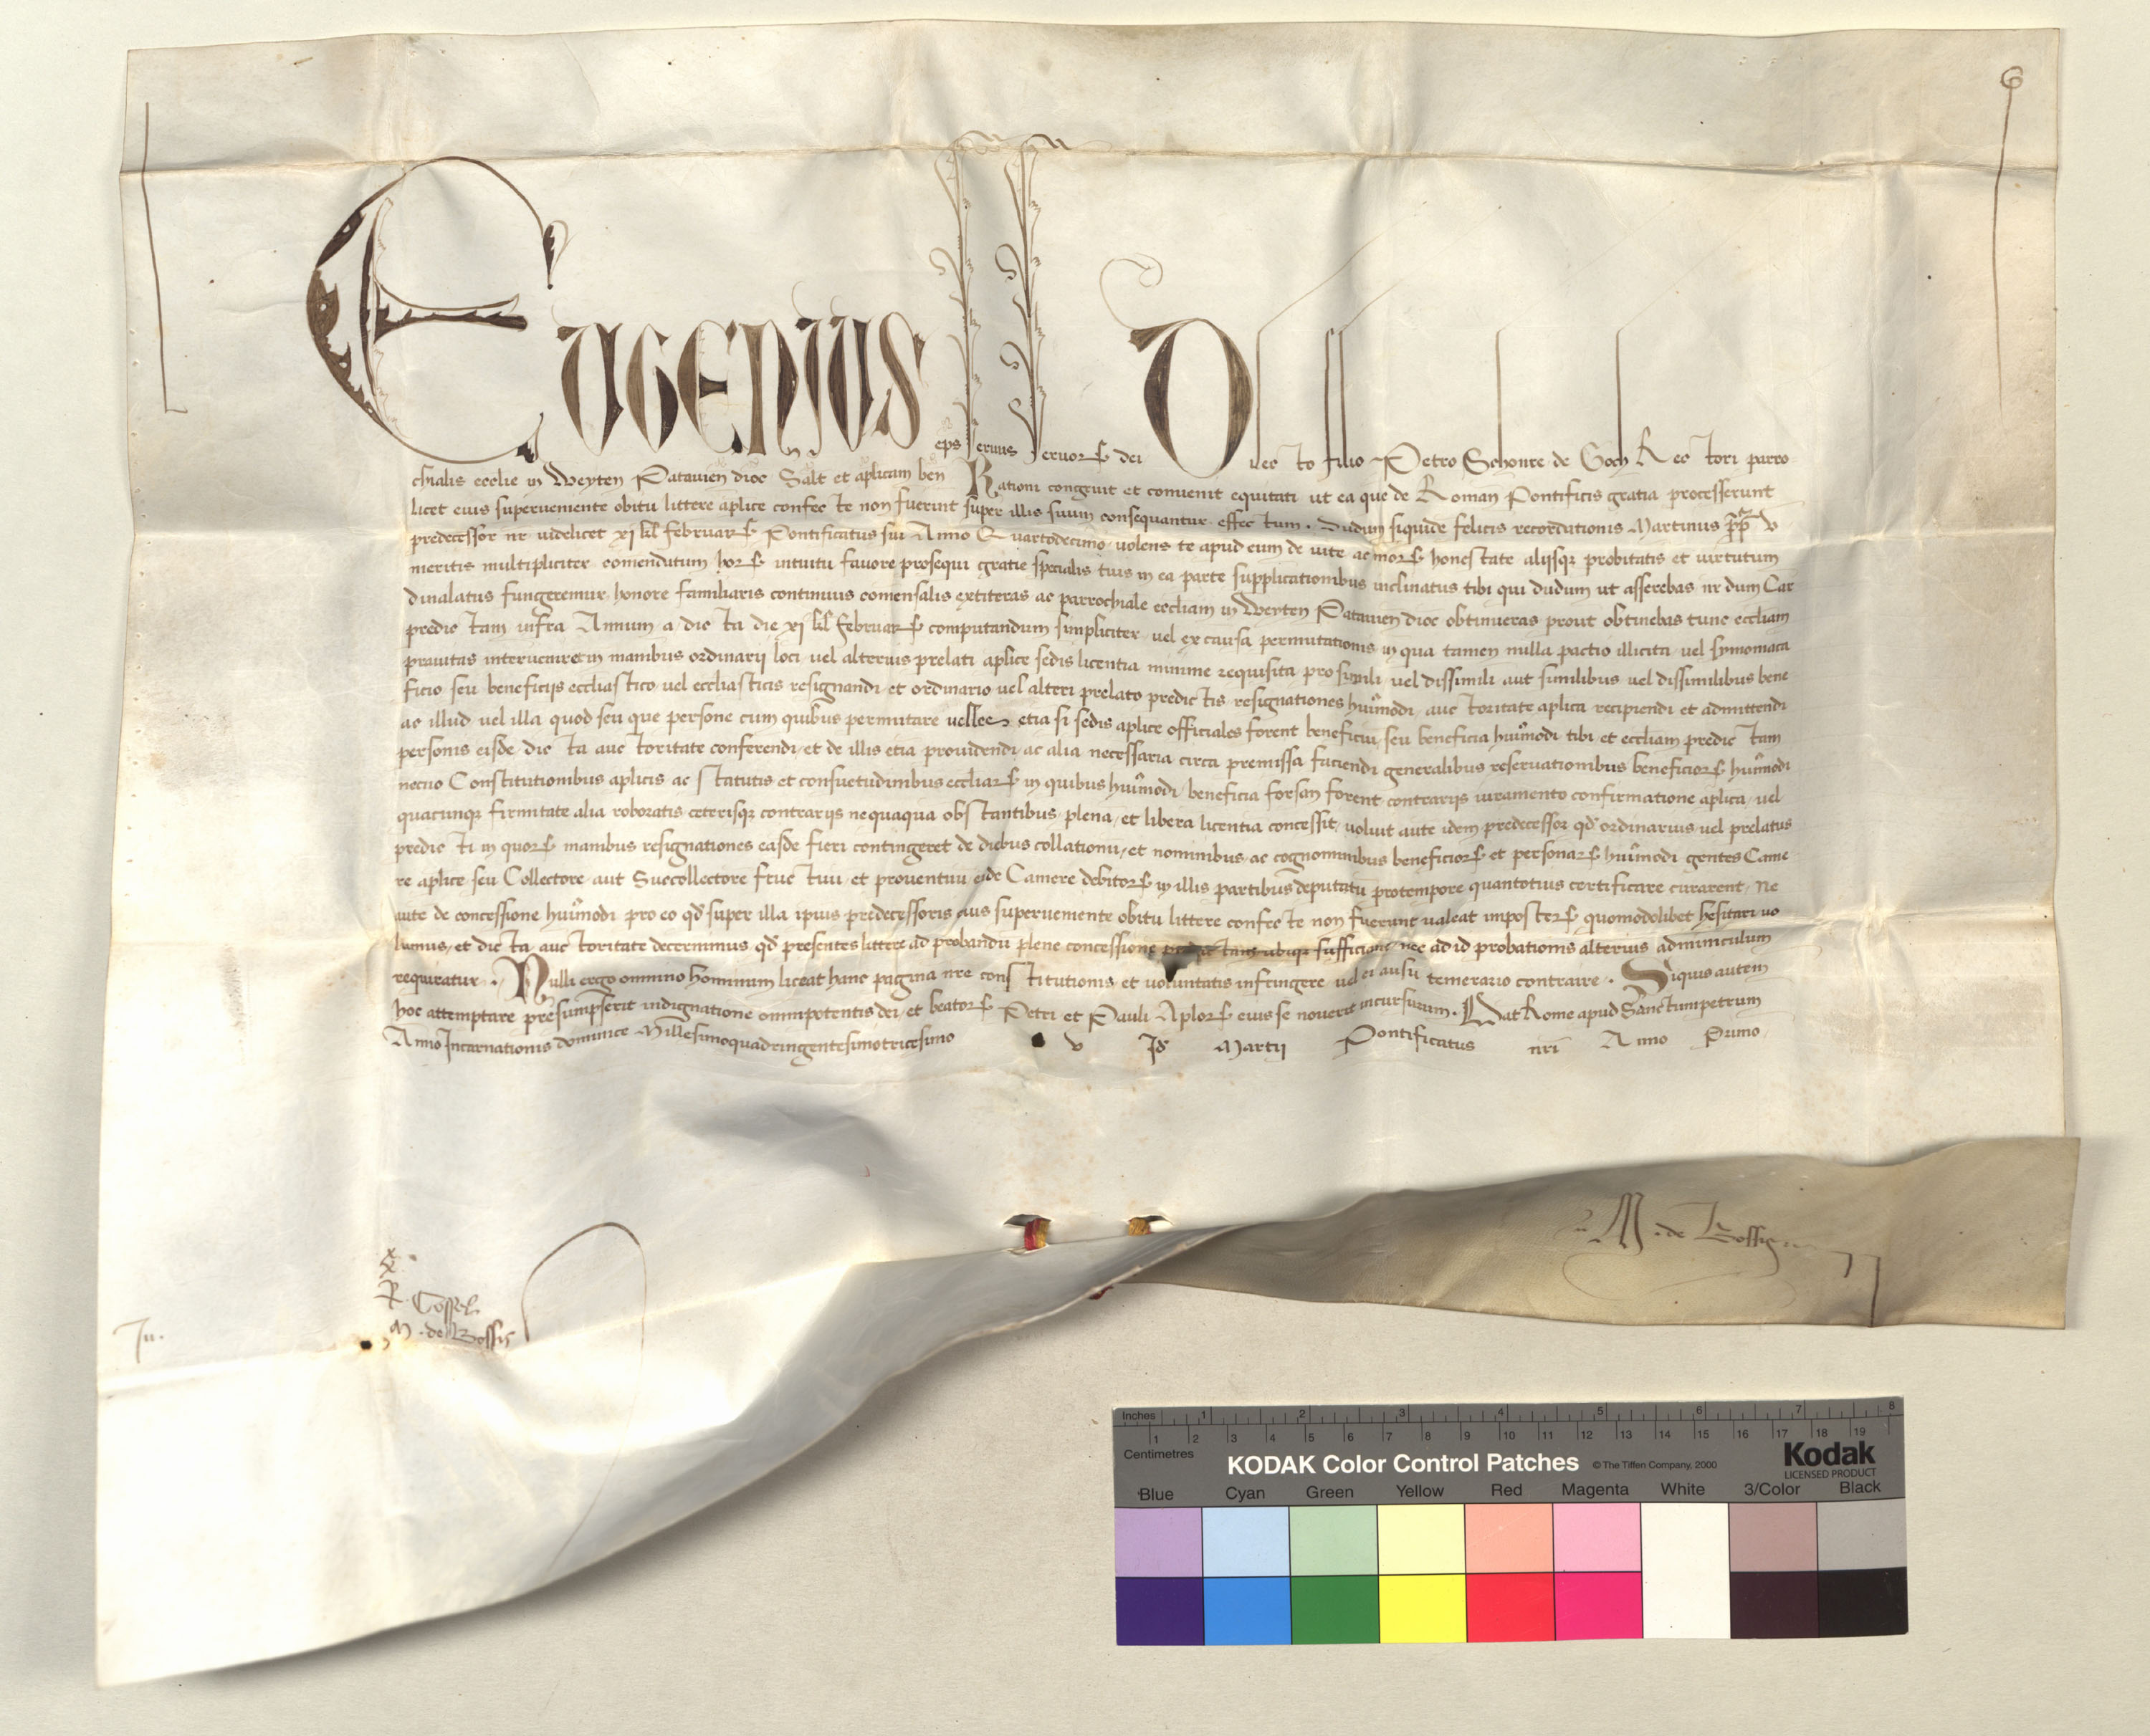 Eugenius eps servus servorꝝ dei Dilecto filio Petro Schonre de Goch Rectori parro
chialis ecclie in Weyten Patavien dioc Salt et aplicam ben Rationi congruit et convenit equitati ut ea que de Roman Pontificis gratia processerunt
licet eius superveniente obitu littere aplice confecte non fuerint super illis suum consequantur effectum. Dudum siquide felicis recordationis Martinus pp v
predecessor nr videlicet xj kl februarꝝ Pontificatus sui Anno Quartodecimo volens te apud eum de vite ac morꝝ honestate alijsqȝ probitatis et virtutum
meritis multipliciter comendatum horꝝ intuitu favore prosequi gratie specialis tuis in ea parte supplicationibus inclinatus tibi qui dudum ut asserebas nr dum Car
dinalatus fungeremur honore familiaris continuus comensalis extiteras ac parrochiale eccliam in Weyten Patavien dioc obtinueras prout obtinebas tunc eccliam
predictam infra Annum a dicta die xj kl februarꝝ computandum simpliciter vel ex causa permutationis in qua tamen nulla pactio illicita vel symoniaca
pravitas interveniret in manibus ordinarij loci vel alterius prelati aplice sedis licentia minime requisita pro simili vel dissimili aut similibus vel dissimilibus bene
ficio seu beneficijs eccliastico vel eccliasticis resignandi et ordinario vel alteri prelato predictis resignationes huiusmodi auctoritate aplica recipiendi et admittendi
ac illud vel illa quod seu que persone cum quibus permutare velles etia si sedis aplice officiales forent beneficiu seu beneficia huiusmodi tibi et eccliam predictam
personis eisde dicta auctoritate conferendi et de illis etia providendi ac alia necessaria circa premissa faciendi generalibus reservationibus beneficiorꝝ huiusmodi
necno Constitutionibus aplicis ac statutis et consuetudinibus eccliarꝝ in quibus huiusmodi beneficia forsan forent contrarijs iuramento confirmatione aplica vel
quacunqȝ firmitate alia roboratis ceterisqȝ contrarijs nequaqua obstantibus plena et libera licentia concessit voluit aute idem predecessor qd ordinarius vel prelatus
predicti in quorꝝ manibus resignationes easde fieri contingeret de diebus collationu et nominibus ac cognominibus beneficiorꝝ et personarꝝ huiusmodi gentes Came
re aplice seu Collectore aut Succollectore fructuu et proventuu eide Camere debitorꝝ in illis partibus deputatu protempore quantotius certificare curarent Ne
aute de concessione huiusmodi pro eo qd super illa ipius predecessoris eius superveniente obitu littere confecte non fuerunt valeat imposterꝝ quomodolibet hesitari vo
lumus et dicta auctoritate decernimus qd presentes littere ad probandu plene concessione predictam ubiqȝ sufficiant nec ad id probationis alterius adminiculum
requiratur. Nulli ergo omnino hominum liceat hanc pagina nre constitutionis et voluntatis infringere vel ei ausu temerario contraire. Siquis autem
hoc attemptare presumpserit indignatione omnipotentis dei et beatorꝝ Petri et Pauli Aplorꝝ eius se noverit incursurum. Dat Rome apud Sanctumpetrum
Anno Incarnationis dominice Millesimoquadringentesimotricesimo v Id Martij Pontificatus nri Anno Primo
M. de Bossis
x
R. Coppel
M. de Bossis
Ju.
Inches 1 2 3 4 5 6 7 8
Centimetres 1 2 3 4 5 6 7 8 9 10 11 12 13 14 15 16 17 18 19
KODAK Color Control Patches © The Tiffen Company, 2000 Kodak
LICENSED PRODUCT
Blue Cyan Green Yellow Red Magenta White 3/Color Black